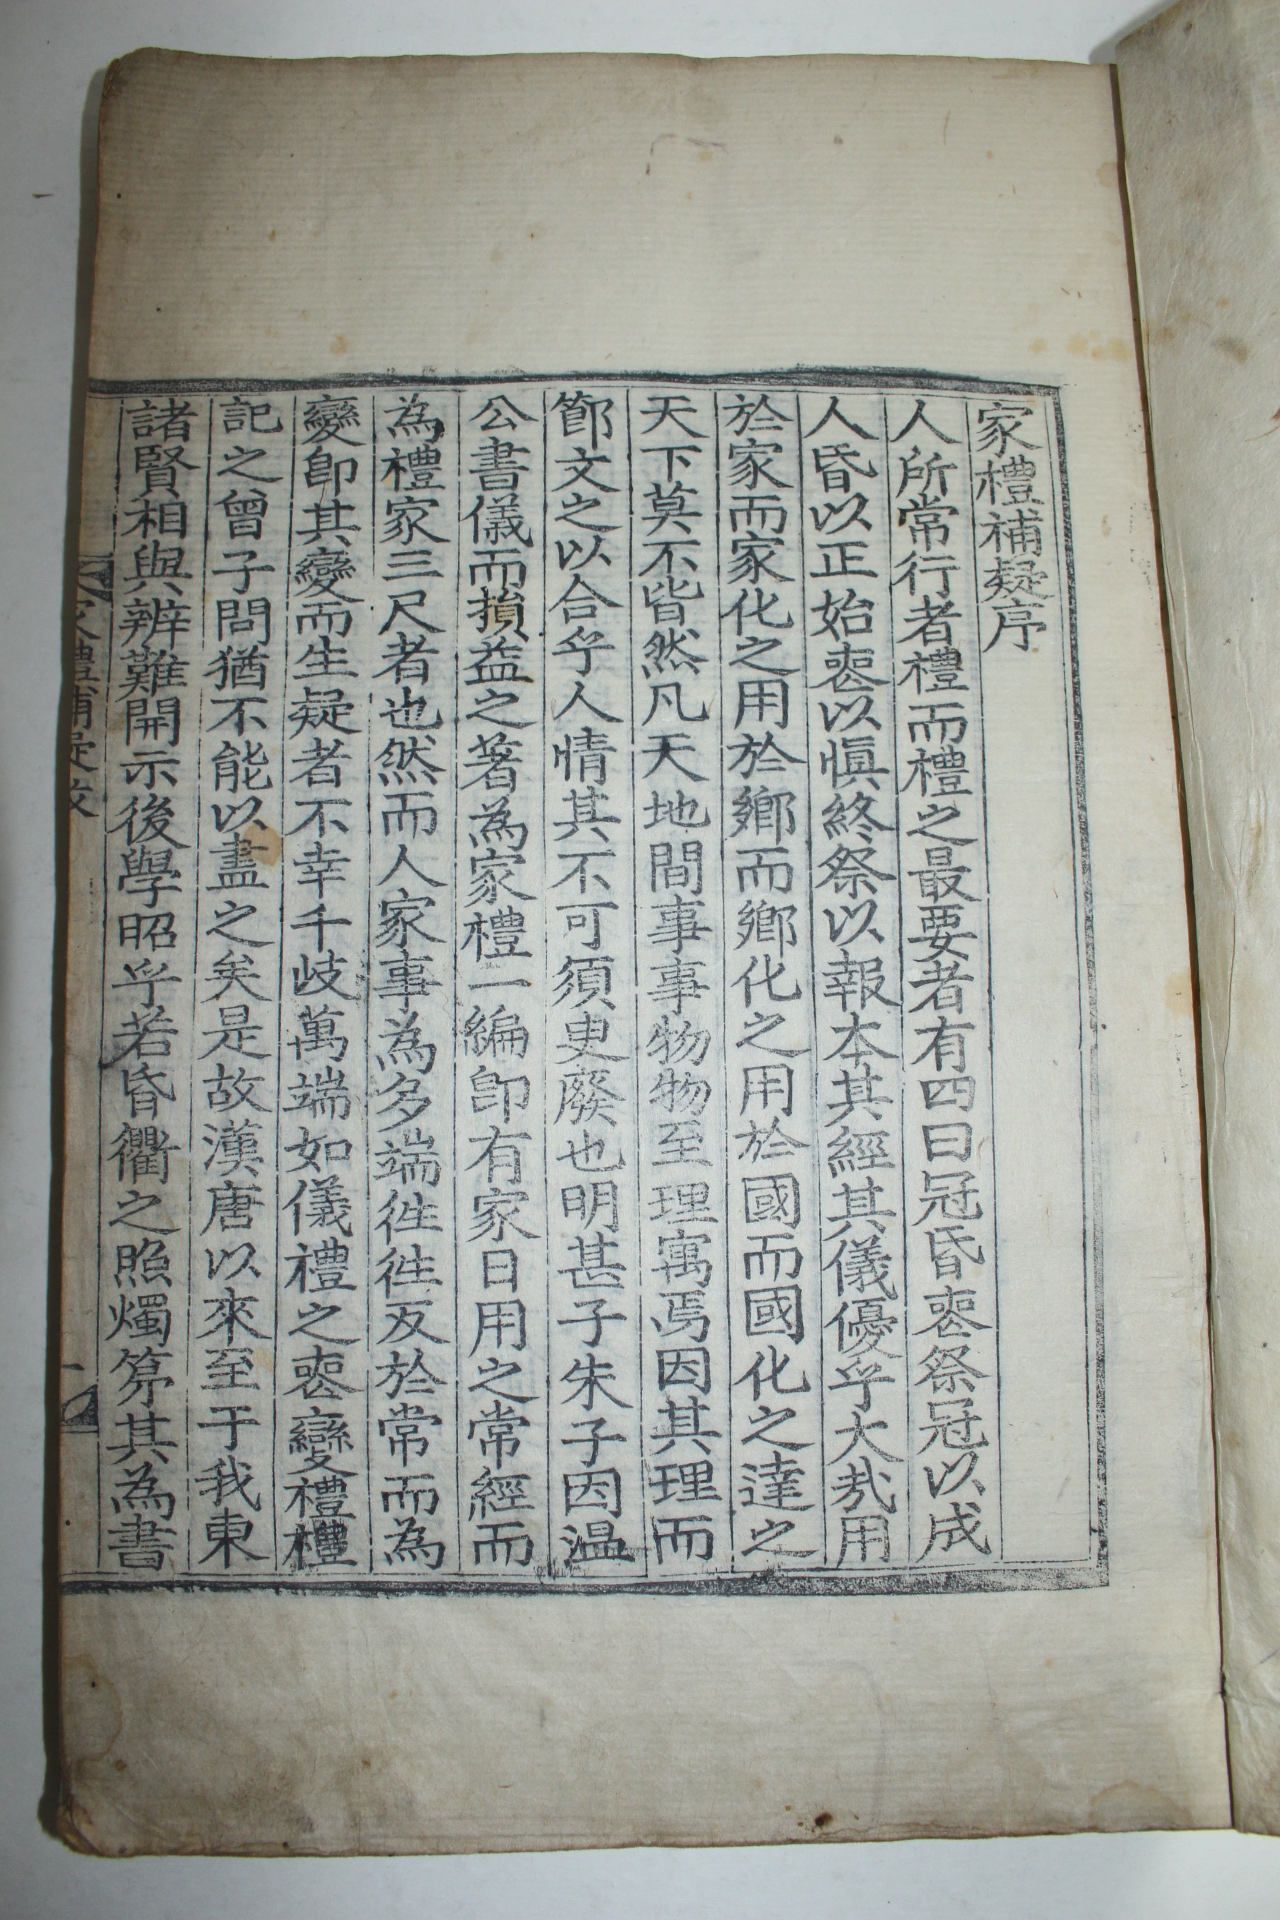 家禮補疑序
人所常行者禮而禮之最要者有四曰冠昏喪祭冠以成
人昏以正始喪以愼終祭以報本其經其儀優乎大哉用
於家而家化之用於鄕而鄕化之用於國而國化之達之
天下莫不皆然凡天地間事事物物至理寓焉因其理而
節文之以合乎人情其不可須臾廢也明甚子朱子因溫
公書儀而損益之著為家禮一編卽有家日用之常經而
為禮家三尺者也然而人家事為多端徃徃反於常而為
變卽其變而生疑者不幸千歧萬端如儀禮之喪變禮禮
記之曾子問猶不能以盡之矣是故漢唐以來至于我東
諸賢相與辨難開示後學昭乎若昏衢之照燭第其為書
家禮補疑序
一